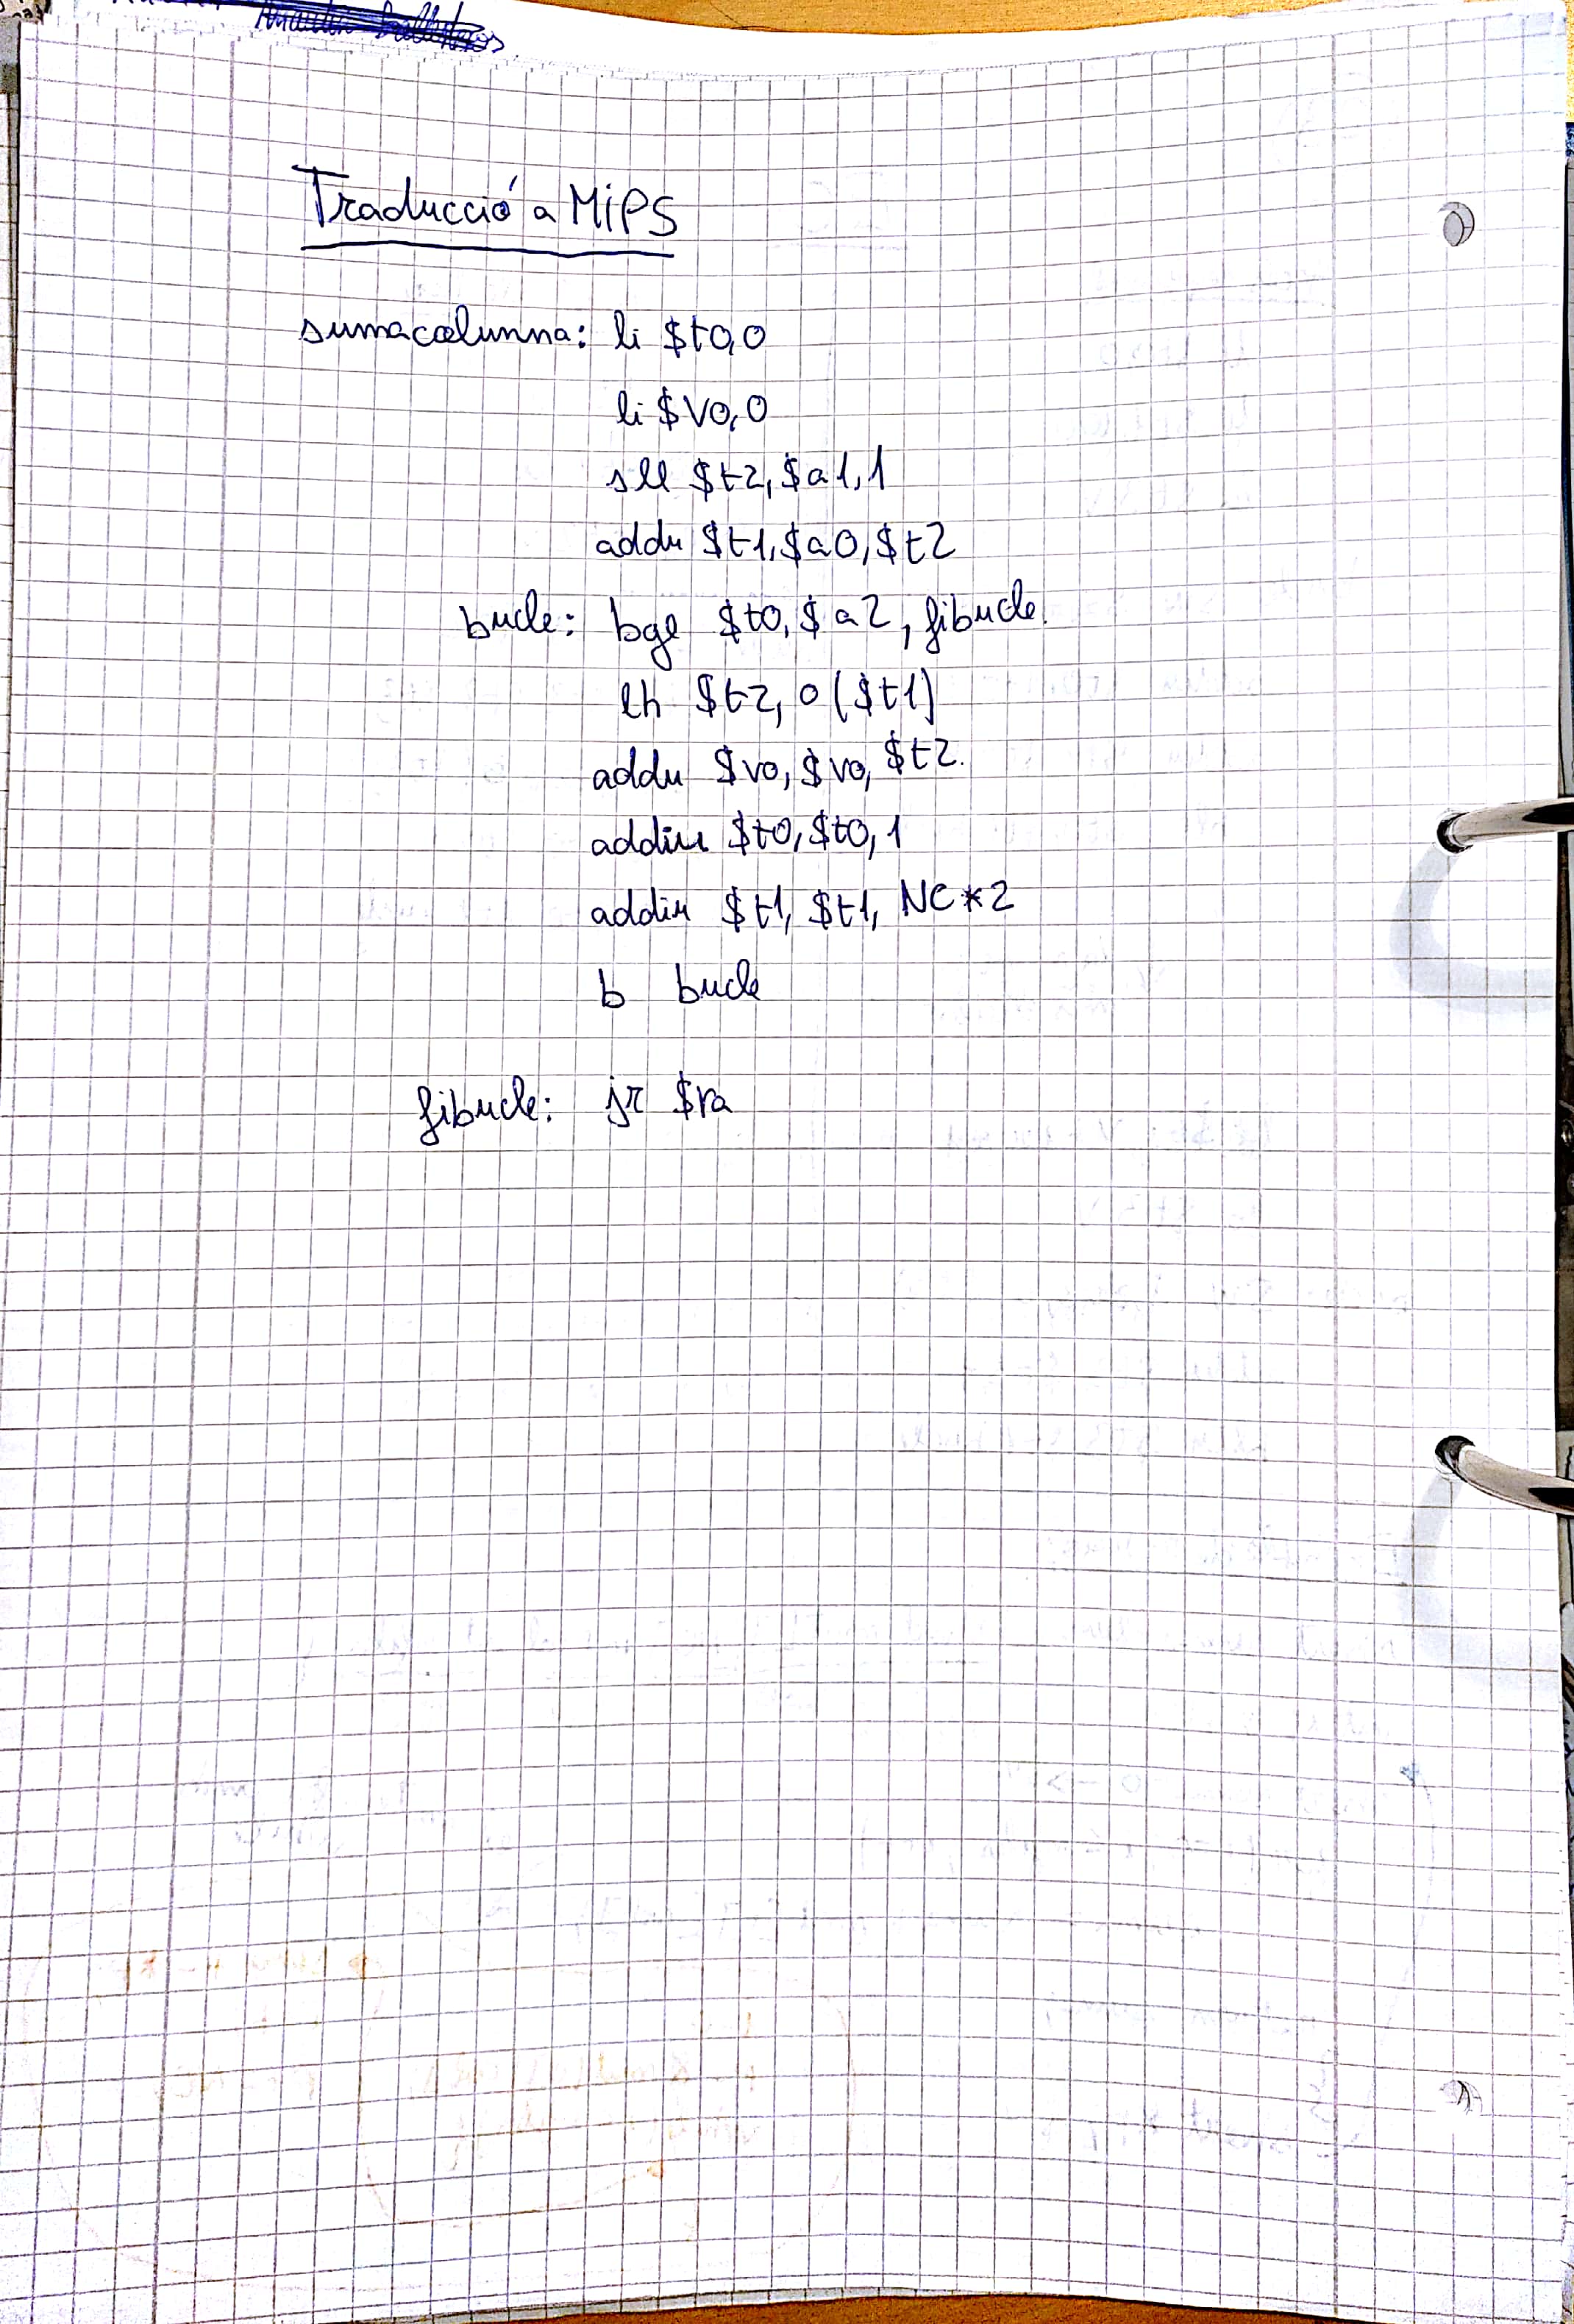 Traducció a MiPS
sumacolumna: li $t0,0
li $v0,0
sll $t2,$a1,1
addu $t1,$a0,$t2
bucle: bge $t0,$a2, fibucle.
lh $t2, 0($t1)
addu $v0,$v0,$t2.
addiu $t0,$t0,1
addiu $t1, $t1, NC*2
b bucle
fibucle: jr $ra